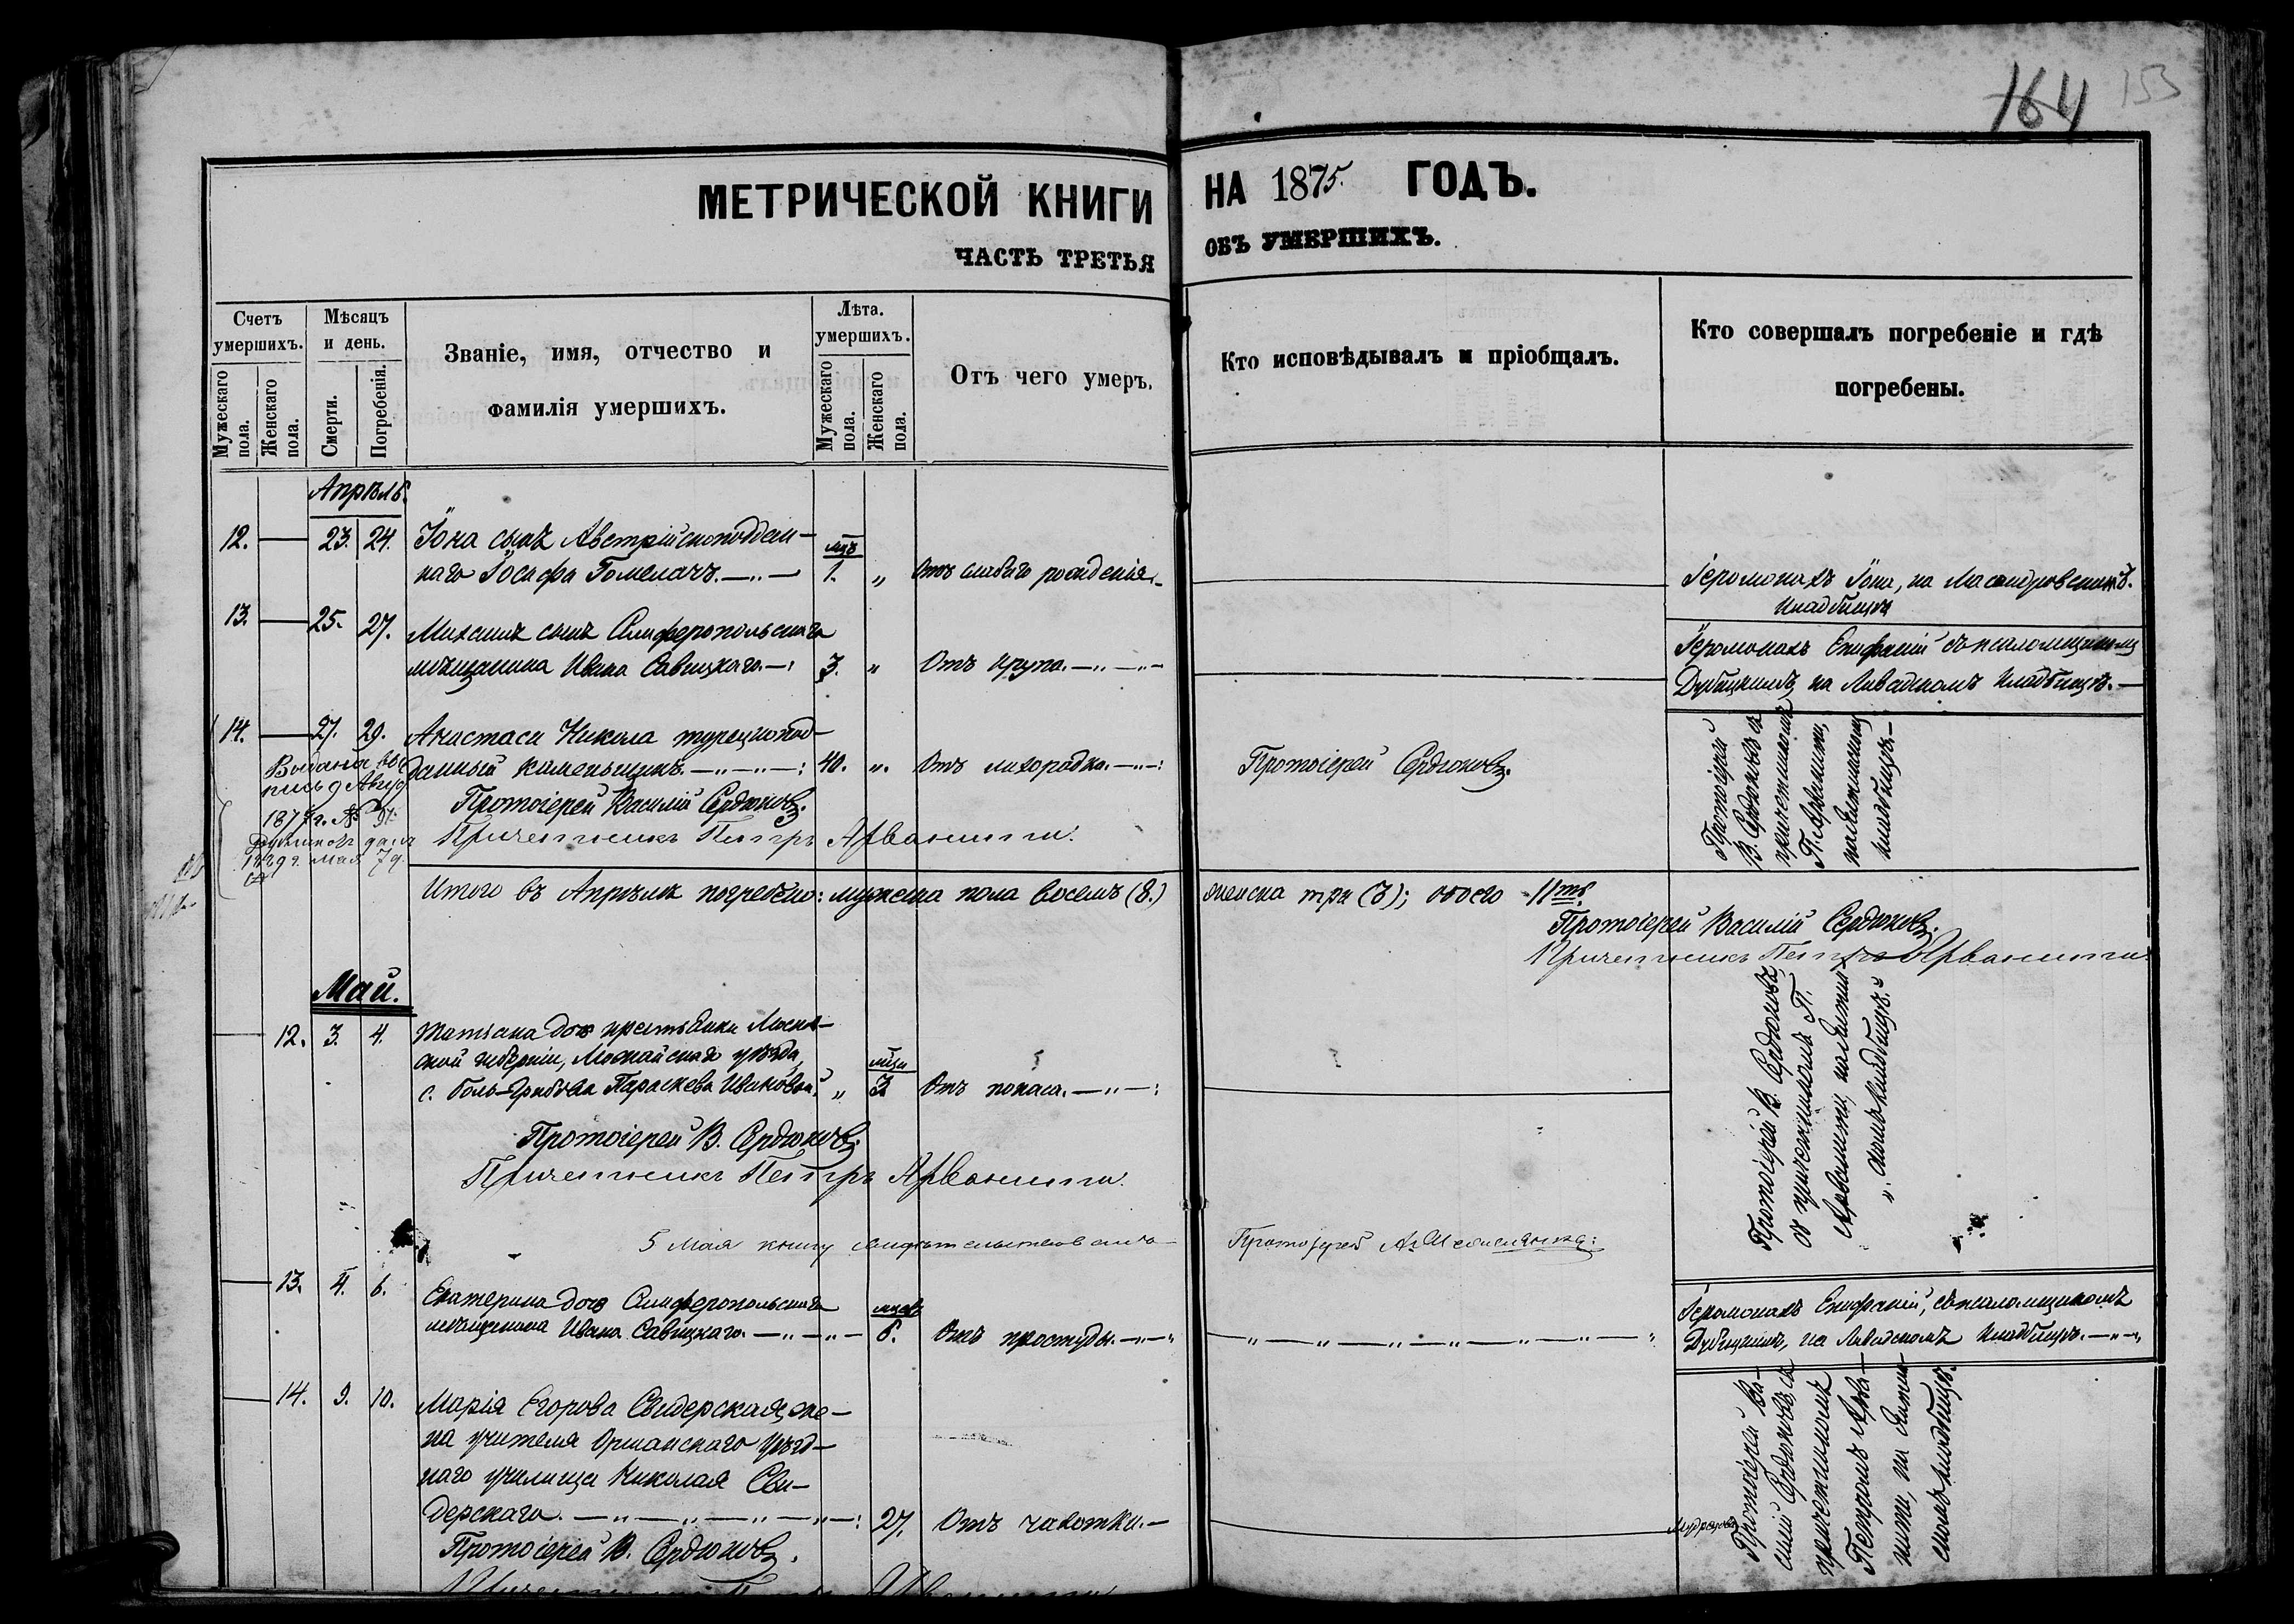 164 153
МЕТРИЧЕСКОЙ КНИГИ НА 1875. ГОДЪ.
ЧАСТЬ ТРЕТЬЯ ОБЪ УМЕРШИХЪ.
Счетъ умершихъ.
Мужескаго пола.
Женскаго пола.
Мѣсяцъ и день.
Смерти.
Погребенія.
Званіе, имя, отчество и
фамилія умершихъ.
Лѣта.
умершихъ.
Мужескаго пола.
Женскаго пола.
Отъ чего умеръ.
Кто исповѣдывалъ и пріобщалъ.
Кто совершалъ погребеніе и гдѣ
погребены.
Апрѣль.
12. — 23. 24. Іона сынъ Австрійскоподдан-
наго Іосифа Гомелачъ. мцъ 1. „ Отъ слабаго рожденія.
Іеромонахъ Іона, на Масандровскомъ
кладбищѣ
13. — 25. 27. Михаилъ сынъ Симферопольскаго
мѣщанина Ивана Савицкаго. 3. „ Отъ крупа.
Іеромонахъ Епифаній съ псаломщикомъ
Дубицкимъ на Ливадскомъ кладбищѣ.
14. — 27. 29. Анастаси Никола турецкопод-
данный каменьщикъ. 40. „ Отъ лихорадки.
Протоіерей Сердюковъ.
Протоіерей
В. Сердюковъ съ
причетникомъ
П. Арванити,
на Ялтинскомъ
кладбищѣ.
Выдана вы
пись 9 Авгус
1877 г. №
1889 г. мая 7 д.
Протоіерей Василій Сердюковъ.
Причетникъ Петръ Арванити.
Итого въ Апрѣлѣ погребено: мужеска пола восемь (8.) женска три (3); обоего 11ть.
Протоіерей Василій Сердюковъ.
Причетникъ Петръ Арванити
Май.
— 12. 3. 4. Татіана дочь крестьянки Моско-
ской губерніи, Можайскаго уѣзда,
с. Параскева Ивановой. „ мци 3 Отъ поноса.
Протоіерей В. Сердюковъ
съ причетникомъ П.
Арванити, на Ялтин
скомъ кладбищѣ.
Протоіерей В. Сердюковъ.
Причетникъ Петръ Арванити.
5 Мая книгу свидѣтельствовалъ Протоіерей
— 13. 4. 6. Екатерина дочь Симферопольскаго
мѣщанина Ивана Савицкаго. мцев 6. Отъ простуды.
Іеромонахъ Епифаній, съ псаломщикомъ
Дубицкимъ, на Ливадскомъ кладбищѣ.
— 14. 9. 10. Марія Егорова Свидерская, же-
на учителя Оршанскаго уѣзд-
наго училища Николая Сви-
дерскаго. 27. Отъ чахотки.
Протоіерей Ва-
силій Сердюковъ съ
причетникомъ
Петромъ Арва-
нити, на Ялтин-
скомъ кладбищѣ.
Протоіерей В. Сердюковъ.